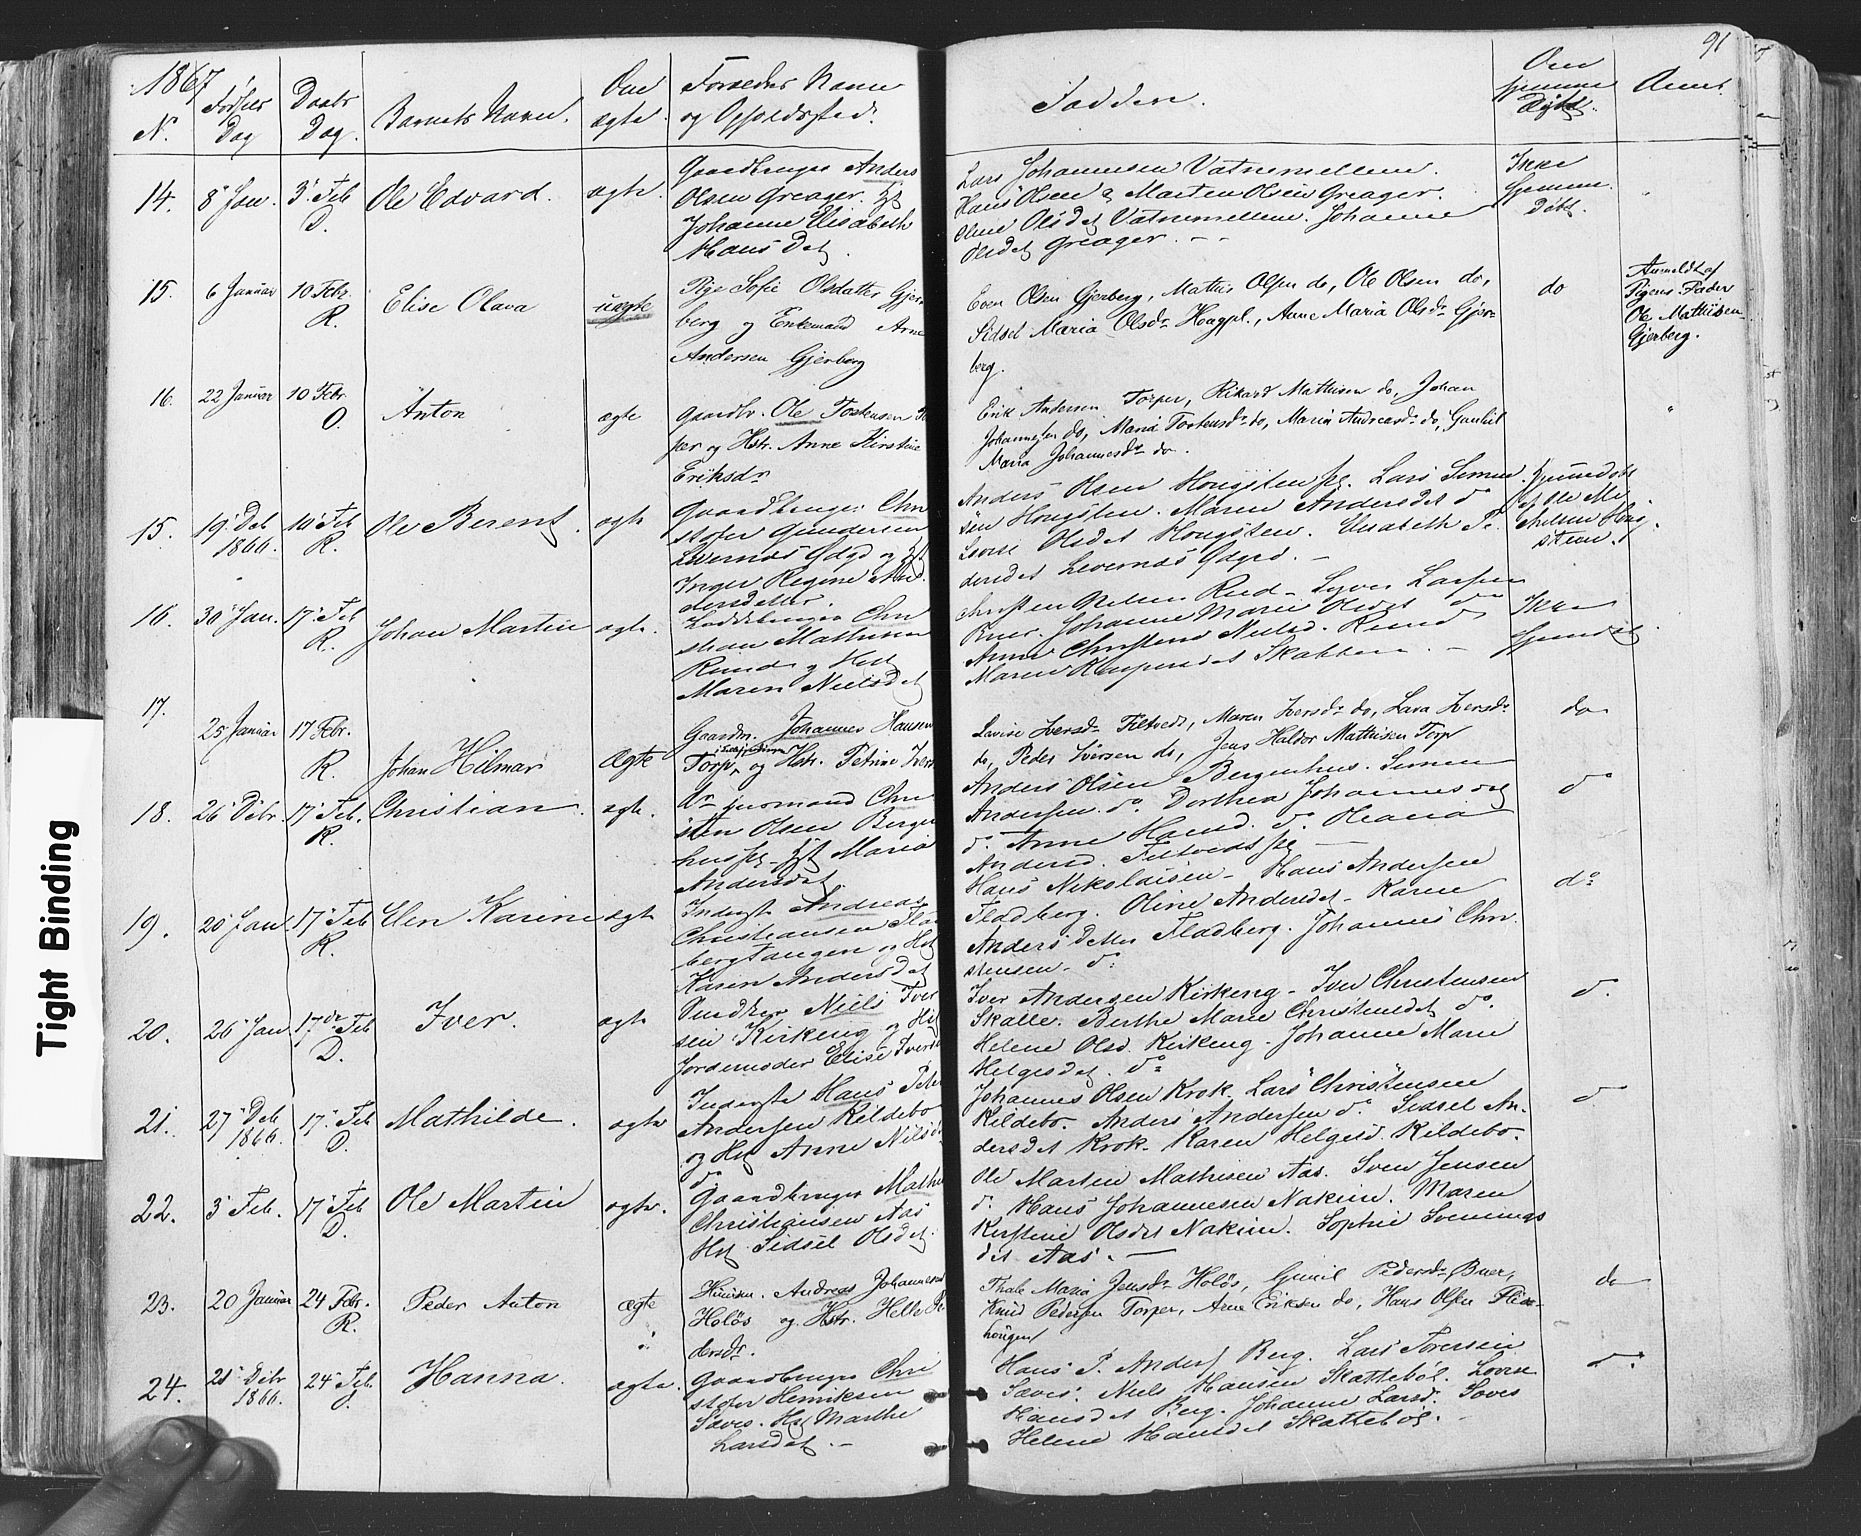 1867
91
N.
Fødsels Dag
Daabs Dag.
Barnets Navn.
Om ægte.
Forældres Navne og Opholdssted.
Faddere.
Om hjemme Døbt.
Anm.
14. 8 Jan. 3 Feb D. Ole Edvard. ægte.
Gaardbruger Anders
Olsen Greager. Hst
Johanne Elisabeth
Hans Det.
Lars Johannesen Vatnemellem.
Hans Olsen & Marten Olsen Greager.
Olene Olsdet Vatnemellem. Johanne
Olsdet Greager. - -
Ikke
hjemme
Døbt.
15. 6 Januar 10 Febr. R. Elise Olava uægte
Pige Sofie Olsdatter Gjer-
berg og Enkemand Arne
Andersen Gjerberg
Even Olsen Gjerberg, Mathis Olsen do, Ole Olsen do,
Sidsel Maria Olsdr Hagpl., Anne Maria Olsdr Gjer-
berg.
do
Anmeldt af
Pigens Fader
Ole Mathisen
Gjerberg.
16. 22 Januar 10 Febr. O. Anton ægte
Gaardbr. Ole Torstensen Tor
per og Hstr. Anne Kirstine
Eriksdr
Erik Andersen Torper, Rikard Mathisen do, Johan
Johannesen do, Maria Torstensdr do, Maria Andreasdr do, Gunhil
Maria Johannesdr do.
15. 19 Deb 1866. 10 Feb R. Ole Berent. ægte
Gaardbruger Chri
stofer Gundersen
Levernæs Ødgd og Hst
Inger Regine An
dersdatter.
Anders Olsen Hougsten pl. Lars Simen
sen Hougsten. Maren Andersdet do
Lovise Olsdet Hougsten. Elisabeth Pe
dersdet Levernæs Ødgrd. -
Hjemmedøbt
af Ole Mi
kelsen Houg
steen.
16. 30 Jan. 17 Feb R. Johan Martin ægte.
Christian Mathisen
Ruud og Hst
Maren Nielsdet
Christen Nilsen Rud - Syver Larsen
Buer. Johanne Marie Olsdet do
Anne Christine Nielsd. Ruud
Maren Kaspersdet Skakken. -
Ikke
hjemdøbt
17. 25 Januar 17 Febr. R. Johan Hilmar Ægte
Gaardm. Johannes Hansen
Torp, og Hstr. Petrine Ivers
dr
Lovise Iversdr Filtvedt, Maren Iversdr do, Lava Iversdr
do, Peder Iversen do, Jens Haldor Mathisen Torp
do
18. 26 Debr. 17 Feb. R. Christian. ægte.
Husmand Chri
sten Olsen Bergen
hus pl. Hst Maria
Andersdet.
Anders Olsen Bergenhus. Simen
Andersen do. Dorthea Johannesdet
do. Anne Hansd. do. Oleana
Andersd. Filtvedt pl. -
do
19. 20 Jan 17 Feb R. Elen Karine ægte
Inderste Andreas
Christiansen Flad
berg Tangen og Hst
Karen Andersdet
Hans Nikolaisen - Hans Andersen
Fladberg. Oline Andersdet - Karen
Andersdatter Fladberg. Johannes Chri
stensen - do
do
20. 26 Jan 17de Feb D. Iver. ægte
Niels Iver
sen Kirkeng og Hst
Jordemoder Elise Iversd
Iver Andersen Kirkeng - Iver Christensen
Skalle. Berthe Marie Christensdet do.
Helene Olsd. Kirkeng. Johanne Marie
Helgesdet. do
do
21. 27 Deb 1866. 17 Feb D. Mathilde. ægte
Inderste Hans Peter
Andersen Kildebo
og Hst Anne Nilsd
Johannes Olsen Krok. Lars Christensen
Kildebo. Anders Andersen do. Sidsel An-
dersdet Krok. Karen Helgesd. Kildebo.
do
22. 3 Feb. 17 Feb D. Ole Martin ægte.
Gaardbruger Mathi
Christiansen Aas
Hst Sidsel Olsdet.
Ole Marten Mathisen Aas. Sven Jensen
do. Hans Johannesen Nakim. Maren
Kirstine Olsdet Nakim. Sophie Svennings
det Aas. -
23. 20 Januar 24 Febr. R. Peder Anton ægte
Andreas Johannesen
Holøs og Hstr. Helle Pe
dersdr.
Thale Maria Jensdr Holøs, Gunil Pedersdr Buer,
Knud Pedersen Torper, Arne Eriksen do, Hans Olsen
hougen
do
24. 25 Debr 1866. 24 Feb. Hanna. ægte.
Gaardbruger Chri
stofer Henriksen
Saves. Hst Marthe
Larsdet. -
Hans P. Anders Berg. Lars Torersen
Saves. Niels Hansen Skattebøl. Lovise
Hansdet Berg. Johanne Larsd. Saves
Helene Hansdet Skattebøl. -
do
Tight Binding